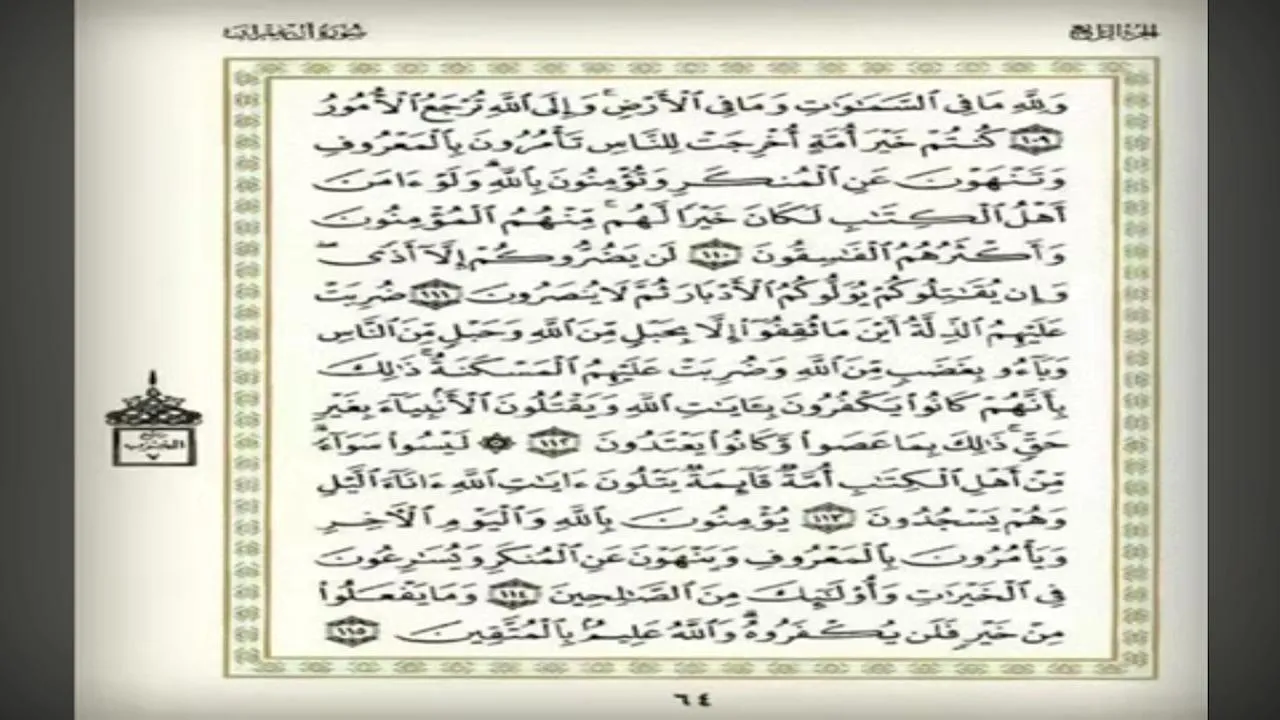 الجزء الرابع
سورة آل عمران
وَلِلَّهِ مَا فِي السَّمَٰوَٰتِ وَمَا فِي الْأَرْضِ ۚ وَإِلَى اللَّهِ تُرْجَعُ الْأُمُورُ
﴿١٠٩﴾ كُنتُمْ خَيْرَ أُمَّةٍ أُخْرِجَتْ لِلنَّاسِ تَأْمُرُونَ بِالْمَعْرُوفِ
وَتَنْهَوْنَ عَنِ الْمُنكَرِ وَتُؤْمِنُونَ بِاللَّهِ ۗ وَلَوْ ءَامَنَ
أَهْلُ الْكِتَٰبِ لَكَانَ خَيْرًا لَّهُم ۚ مِّنْهُمُ الْمُؤْمِنُونَ
وَأَكْثَرُهُمُ الْفَٰسِقُونَ ﴿١١٠﴾ لَن يَضُرُّوكُمْ إِلَّآ أَذًى ۖ
وَإِن يُقَٰتِلُوكُمْ يُوَلُّوكُمُ الْأَدْبَارَ ثُمَّ لَا يُنصَرُونَ ﴿١١١﴾ ضُرِبَتْ
عَلَيْهِمُ الذِّلَّةُ أَيْنَ مَا ثُقِفُوٓا۟ إِلَّا بِحَبْلٍ مِّنَ اللَّهِ وَحَبْلٍ مِّنَ النَّاسِ
وَبَآءُو بِغَضَبٍ مِّنَ اللَّهِ وَضُرِبَتْ عَلَيْهِمُ الْمَسْكَنَةُ ۚ ذَٰلِكَ
بِأَنَّهُمْ كَانُوا۟ يَكْفُرُونَ بِـَٔايَٰتِ اللَّهِ وَيَقْتُلُونَ الْأَنۢبِيَآءَ بِغَيْرِ
حَقٍّ ۚ ذَٰلِكَ بِمَا عَصَوا۟ وَّكَانُوا۟ يَعْتَدُونَ ﴿١١٢﴾ ۞ لَيْسُوا۟ سَوَآءً ۗ
مِّنْ أَهْلِ الْكِتَٰبِ أُمَّةٌ قَآئِمَةٌ يَتْلُونَ ءَايَٰتِ اللَّهِ ءَانَآءَ الَّيْلِ
وَهُمْ يَسْجُدُونَ ﴿١١٣﴾ يُؤْمِنُونَ بِاللَّهِ وَالْيَوْمِ الْآخِرِ
وَيَأْمُرُونَ بِالْمَعْرُوفِ وَيَنْهَوْنَ عَنِ الْمُنكَرِ وَيُسَٰرِعُونَ
فِي الْخَيْرَٰتِ وَأُو۟لَٰٓئِكَ مِنَ الصَّٰلِحِينَ ﴿١١٤﴾ وَمَا يَفْعَلُوا۟
مِنْ خَيْرٍ فَلَن يُكْفَرُوهُ ۗ وَاللَّهُ عَلِيمٌۢ بِالْمُتَّقِينَ ﴿١١٥﴾
ربع
الحزب
٧
٦٤